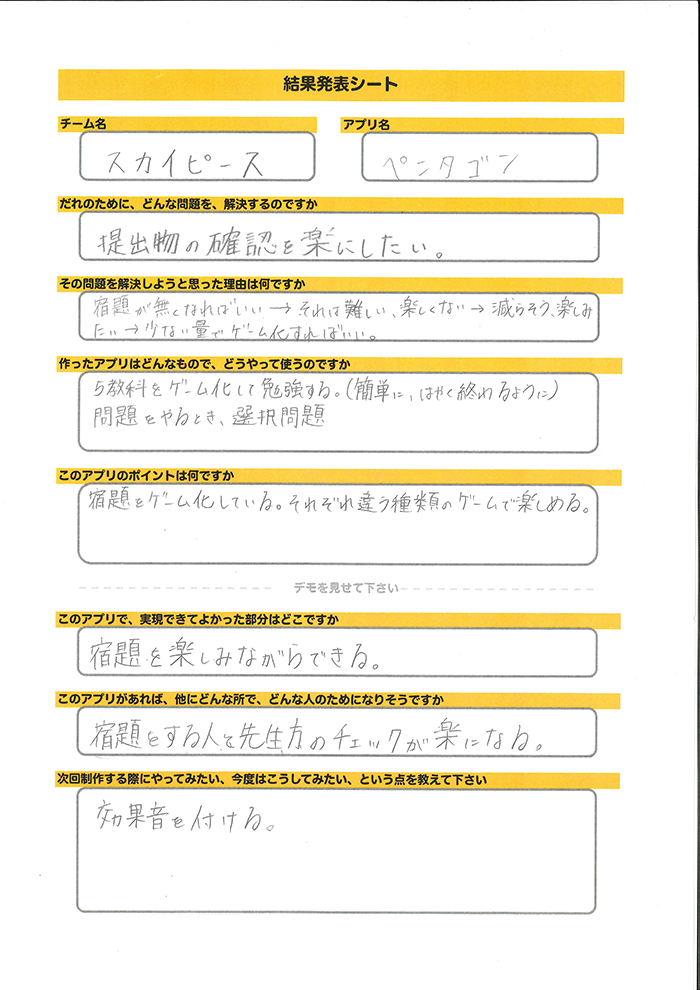 結果発表シート
チーム名
アプリ名
スカイピース
ペンタゴン
だれのために、どんな問題を、解決するのですか
提出物の確認を楽にしたい。
その問題を解決しようと思った理由は何ですか
宿題が無くなればいい→それは難しい、楽しくない→減らそう、楽しみ
たい→少ない量でゲーム化すればいい。
作ったアプリはどんなもので、どうやって使うのですか
5教科をゲーム化して勉強する。(簡単に、はやく終わるように)
問題をやるとき、選択問題
このアプリのポイントは何ですか
宿題をゲーム化している。それぞれ違う種類のゲームで楽しめる。
デモを見せて下さい
このアプリで、実現できてよかった部分はどこですか
宿題を楽しみながらできる。
このアプリがあれば、他にどんな所で、どんな人のためになりそうですか
宿題をする人と先生方のチェックが楽になる。
次回制作する際にやってみたい、今度はこうしてみたい、という点を教えて下さい
効果音を付ける。